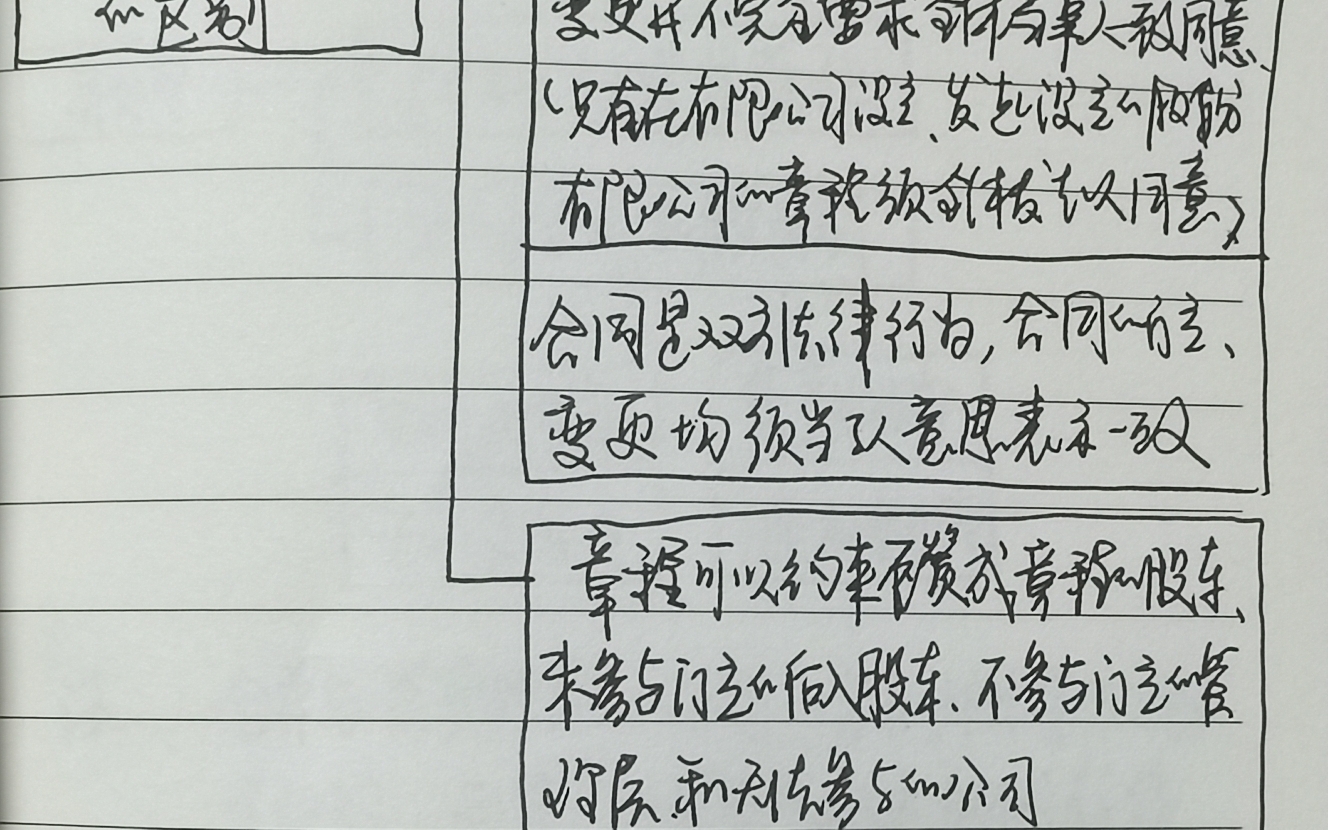 的区别
变更并不完全要求全体当事人一致同意
(只有在有限公司设立、发起设立的股份
有限公司的章程须全体发起人同意)
合同是双方法律行为,合同的订立、
变更均须当事人意思表示一致
章程可以约束不赞成章程的股东、
未参与订立的后入股东、不参与订立的管
理层和无法参与的公司